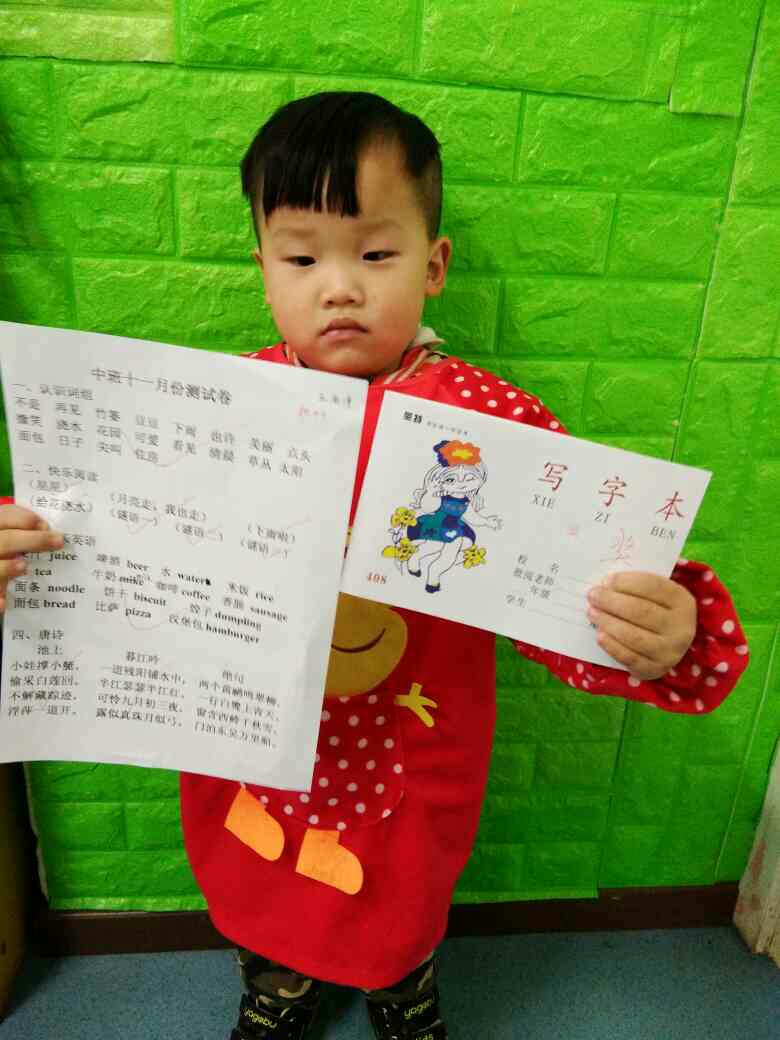 中班十一月份测试卷
一、认识词组
不是 再见 竹蒌 豆豆 下雨 也许 美丽 点头
微笑 浇水 花园 可爱 看见 清晨 草丛 太阳
面包 日子 尖叫 住房
二、快乐阅读
(星星) (月亮走,我也走) (下雨啦)
(给花浇水) (谜语一) (谜语二) (谜语三)
英语
juice 啤酒 beer 水 water 米饭 rice
tea 牛奶 milke 咖啡 coffee 香肠 sausage
面条 noodle 饼干 biscuit 饺子 dumpling
面包 bread 比萨 pizza 汉堡包 hamburger
四、唐诗
池上 暮江吟 绝句
小娃撑小艇, 一道残阳铺水中, 两个黄鹂鸣翠柳,
偷采白莲回。 半江瑟瑟半江红。 一行白鹭上青天。
不解藏踪迹, 可怜九月初三夜, 窗含西岭千秋雪,
浮萍一道开。 露似真珠月似弓。 门泊东吴万里船。
写字本
XIE ZI BEN
奖
校 名
批阅老师
年级
学生
408
yogebu
yogebu